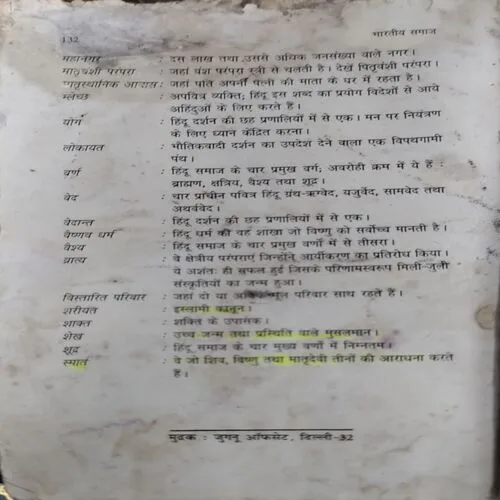 132 भारतीय समाज
महानगर : दस लाख तथा उससे अधिक जनसंख्या वाले नगर।
मातृवंशी परंपरा : जहां वंश परंपरा स्त्री से चलती है। देखें पितृवंशी परंपरा।
मातृस्थानिक आवास : जहां पति अपनी पत्नी की माता के घर में रहता है।
म्लेच्छ : अपवित्र व्यक्ति; हिंदू इस शब्द का प्रयोग विदेशों से आये
अहिंदुओं के लिए करते हैं।
योग : हिंदू दर्शन की छह प्रणालियों में से एक। मन पर नियंत्रण
के लिए ध्यान केंद्रित करना।
लोकायत : भौतिकवादी दर्शन का उपदेश देने वाला एक विपथगामी
पंथ।
वर्ण : हिंदू समाज के चार प्रमुख वर्ग; अवरोही क्रम में ये हैं :
ब्राह्मण, क्षत्रिय, वैश्य तथा शूद्र।
वेद : चार प्राचीन पवित्र हिंदू ग्रंथ-ऋग्वेद, यजुर्वेद, सामवेद तथा
अथर्ववेद।
वेदान्त : हिंदू दर्शन की छह प्रणालियों में से एक।
वैष्णव धर्म : हिंदू धर्म की वह शाखा जो विष्णु को सर्वोच्च मानती है।
वैश्य : हिंदू समाज के चार प्रमुख वर्णों में से तीसरा।
व्रात्य : वे क्षेत्रीय परंपराएं जिन्होंने आर्यीकरण का प्रतिरोध किया।
ये अंशतः ही सफल हुईं जिसके परिणामस्वरूप मिली-जुली
संस्कृतियों का जन्म हुआ।
विस्तारित परिवार : जहां दो या अधिक मूल परिवार साथ रहते हैं।
शरीयत : इस्लामी कानून।
शाक्त : शक्ति के उपासक।
शेख : उच्च जन्म तथा प्रस्थिति वाले मुसलमान।
शूद्र : हिंदू समाज के चार मुख्य वर्णों में निम्नतम।
स्मार्त : वे जो शिव, विष्णु तथा मातृदेवी तीनों की आराधना करते
हैं।
मुद्रक : जुगनू ऑफसेट, दिल्ली-32